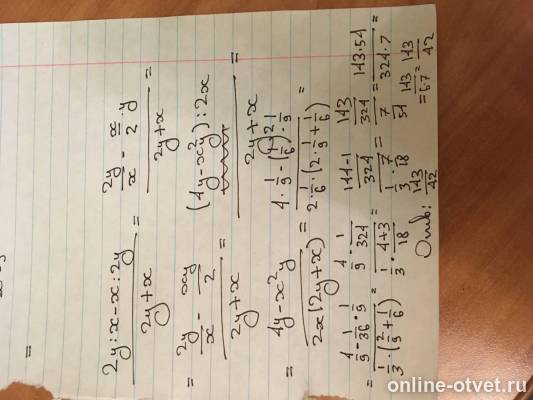 =
(2y:x - x:2y)/(2y+x) = (2y/x - x/2 · y)/(2y+x) =
= (2y/x - xy/2)/(2y+x) = ((4y - x²y):2x)/(2y+x) =
= (4y - x²y)/(2x(2y+x)) = (4 · 1/9 - (1/6)² · 1/9)/(2 · 1/6 · (2 · 1/9 + 1/6)) =
= (4/9 - 1/36 · 1/9)/(1/3 · (2/9 + 1/6)) = (4/9 - 1/324)/(1/3 · (4+3)/18) = ((144-1)/324)/(1/3 · 7/18) = (143/324)/(7/54) = (143·54)/(324·7) =
= 143/(6·7) = 143/42
Ответ: 143/42
online-otvet.ru